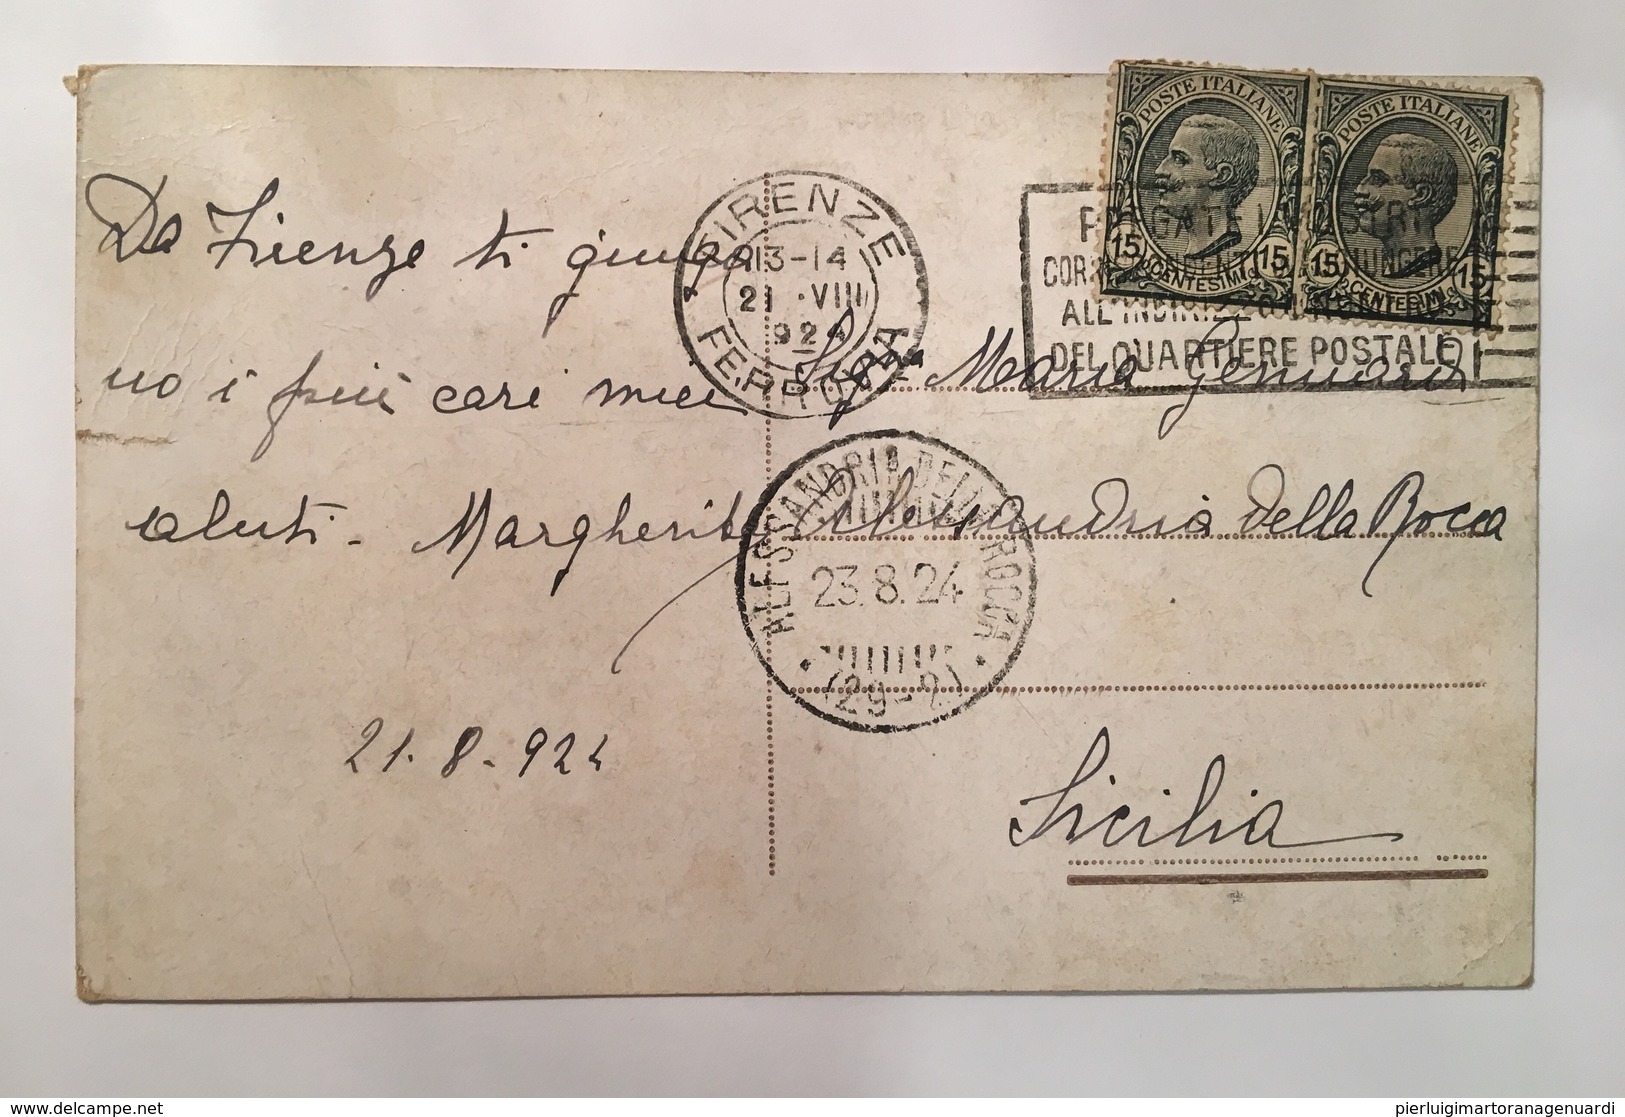 Da Firenze ti giunga
no i più cari miei
saluti - Margherita
21.8.924
FIRENZE
13-14
21 VIII
924
FERROVIA
POSTE ITALIANE
15 CENTESIMI 15
POSTE ITALIANE
15 CENTESIMI 15
ALL'INDIRIZZO
DEL QUARTIERE POSTALE
Sig.na Maria Gennaro
Alessandria della Rocca
Sicilia
ALESSANDRIA DELLA ROCCA
23.8.24
(29-2)
www.delcampe.net
pierluigimartoranagenuardi